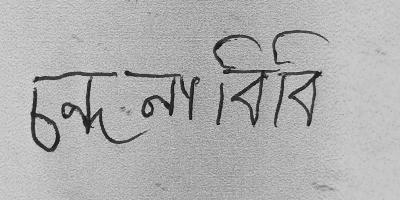 চন্দনা বিবি